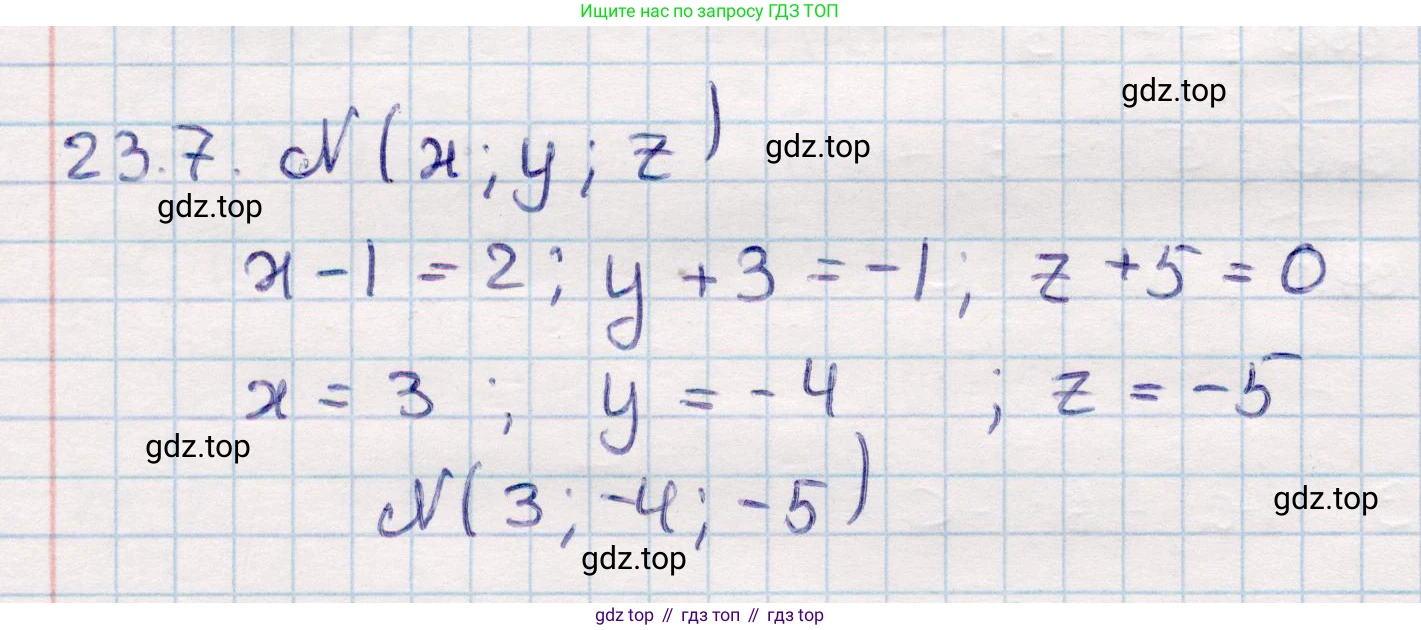 Ищите нас по запросу ГДЗ ТОП
gdz.top
23.7. N(x; y; z)
gdz.top
gdz.top
x - 1 = 2; y + 3 = -1; z + 5 = 0
x = 3; y = -4; z = -5
gdz.top
N(3; -4; -5)
gdz.top
gdz.top
gdz top // гдз топ // гдз top